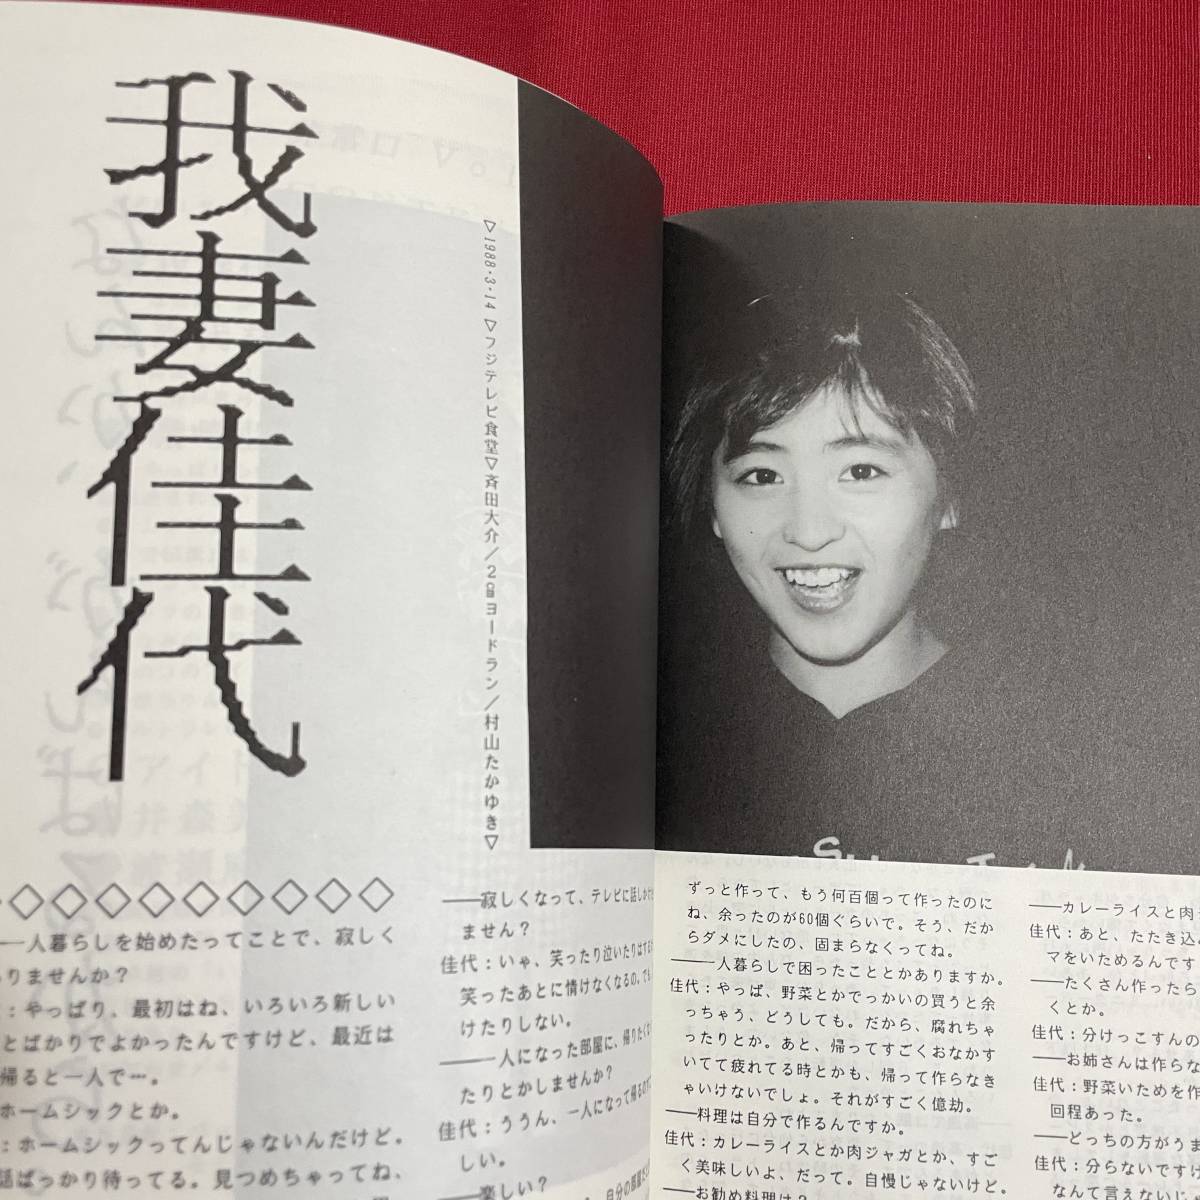 我妻佳代
▽1988・3・14▽フジテレビ食堂▽斉田大介/2個ヨードラン/村山たかゆき▽
◇◇◇◇◇◇◇◇◇
一人暮らしを始めたってことで、寂しく
ありませんか?
:やっぱり、最初はね、いろいろ新しい
とばかりでよかったんですけど、最近は
帰ると一人で…。
ホームシックとか。
:ホームシックってんじゃないんだけど。
話ばっかり待ってる。見つめちゃってね、
──寂しくなって、テレビに話しかけ
ません?
佳代:いゃ、笑ったり泣いたりはするけ
笑ったあとに情けなくなるの。でも
けたりしない。
──一人になった部屋に、帰りたくな
たりとかしませんか?
佳代:ううん、一人になって帰るの
しい。
──楽しい?
自分の部屋
ずっと作って、もう何百個って作ったのに
ね、余ったのが60個ぐらいで。そう、だか
らダメにしたの、固まらなくってね。
──一人暮らしで困ったこととかありますか。
佳代:やっぱ、野菜とかでっかいの買うと余
っちゃう、どうしても。だから、腐れちゃ
ったりとか。あと、帰ってすごくおなかす
いてて疲れてる時とかも、帰って作らなき
ゃいけないでしょ。それがすごく億劫。
──料理は自分で作るんですか。
佳代:カレーライスとか肉ジャガとか、すご
く美味しいよ、だって。自慢じゃないけど。
──お勧め料理は?
──カレーライスと肉
佳代:あと、たたき込
マをいためるんです
──たくさん作ったら
くとか。
佳代:分けっこすんの
──お姉さんは作らな
佳代:野菜いためを作
回程あった。
──どっちの方がうま
佳代:分らないですけ
なんて言えないし